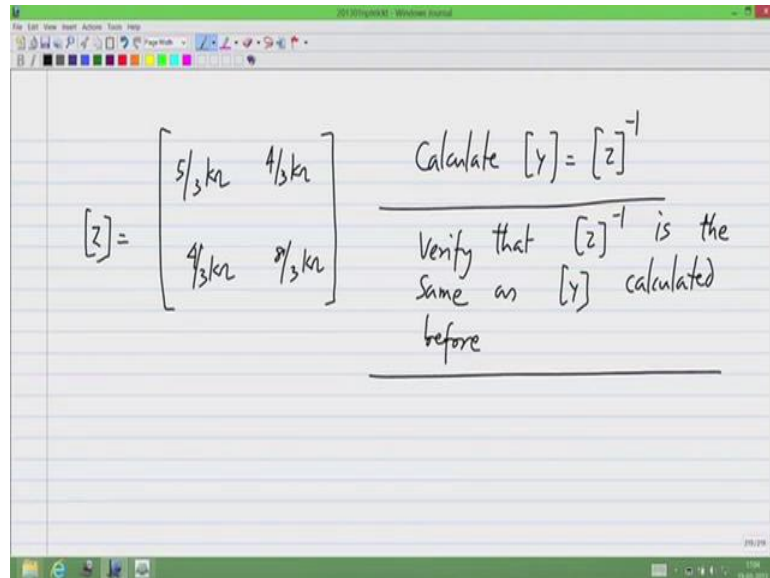 201301nptelckt - Windows Journal
File Edit View Insert Actions Tools Help
Page Width
B I
[Z] = [ 5/3 kΩ 4/3 kΩ
4/3 kΩ 8/3 kΩ ]
Calculate [Y] = [Z]^-1
Verify that [Z]^-1 is the
same as [Y] calculated
before